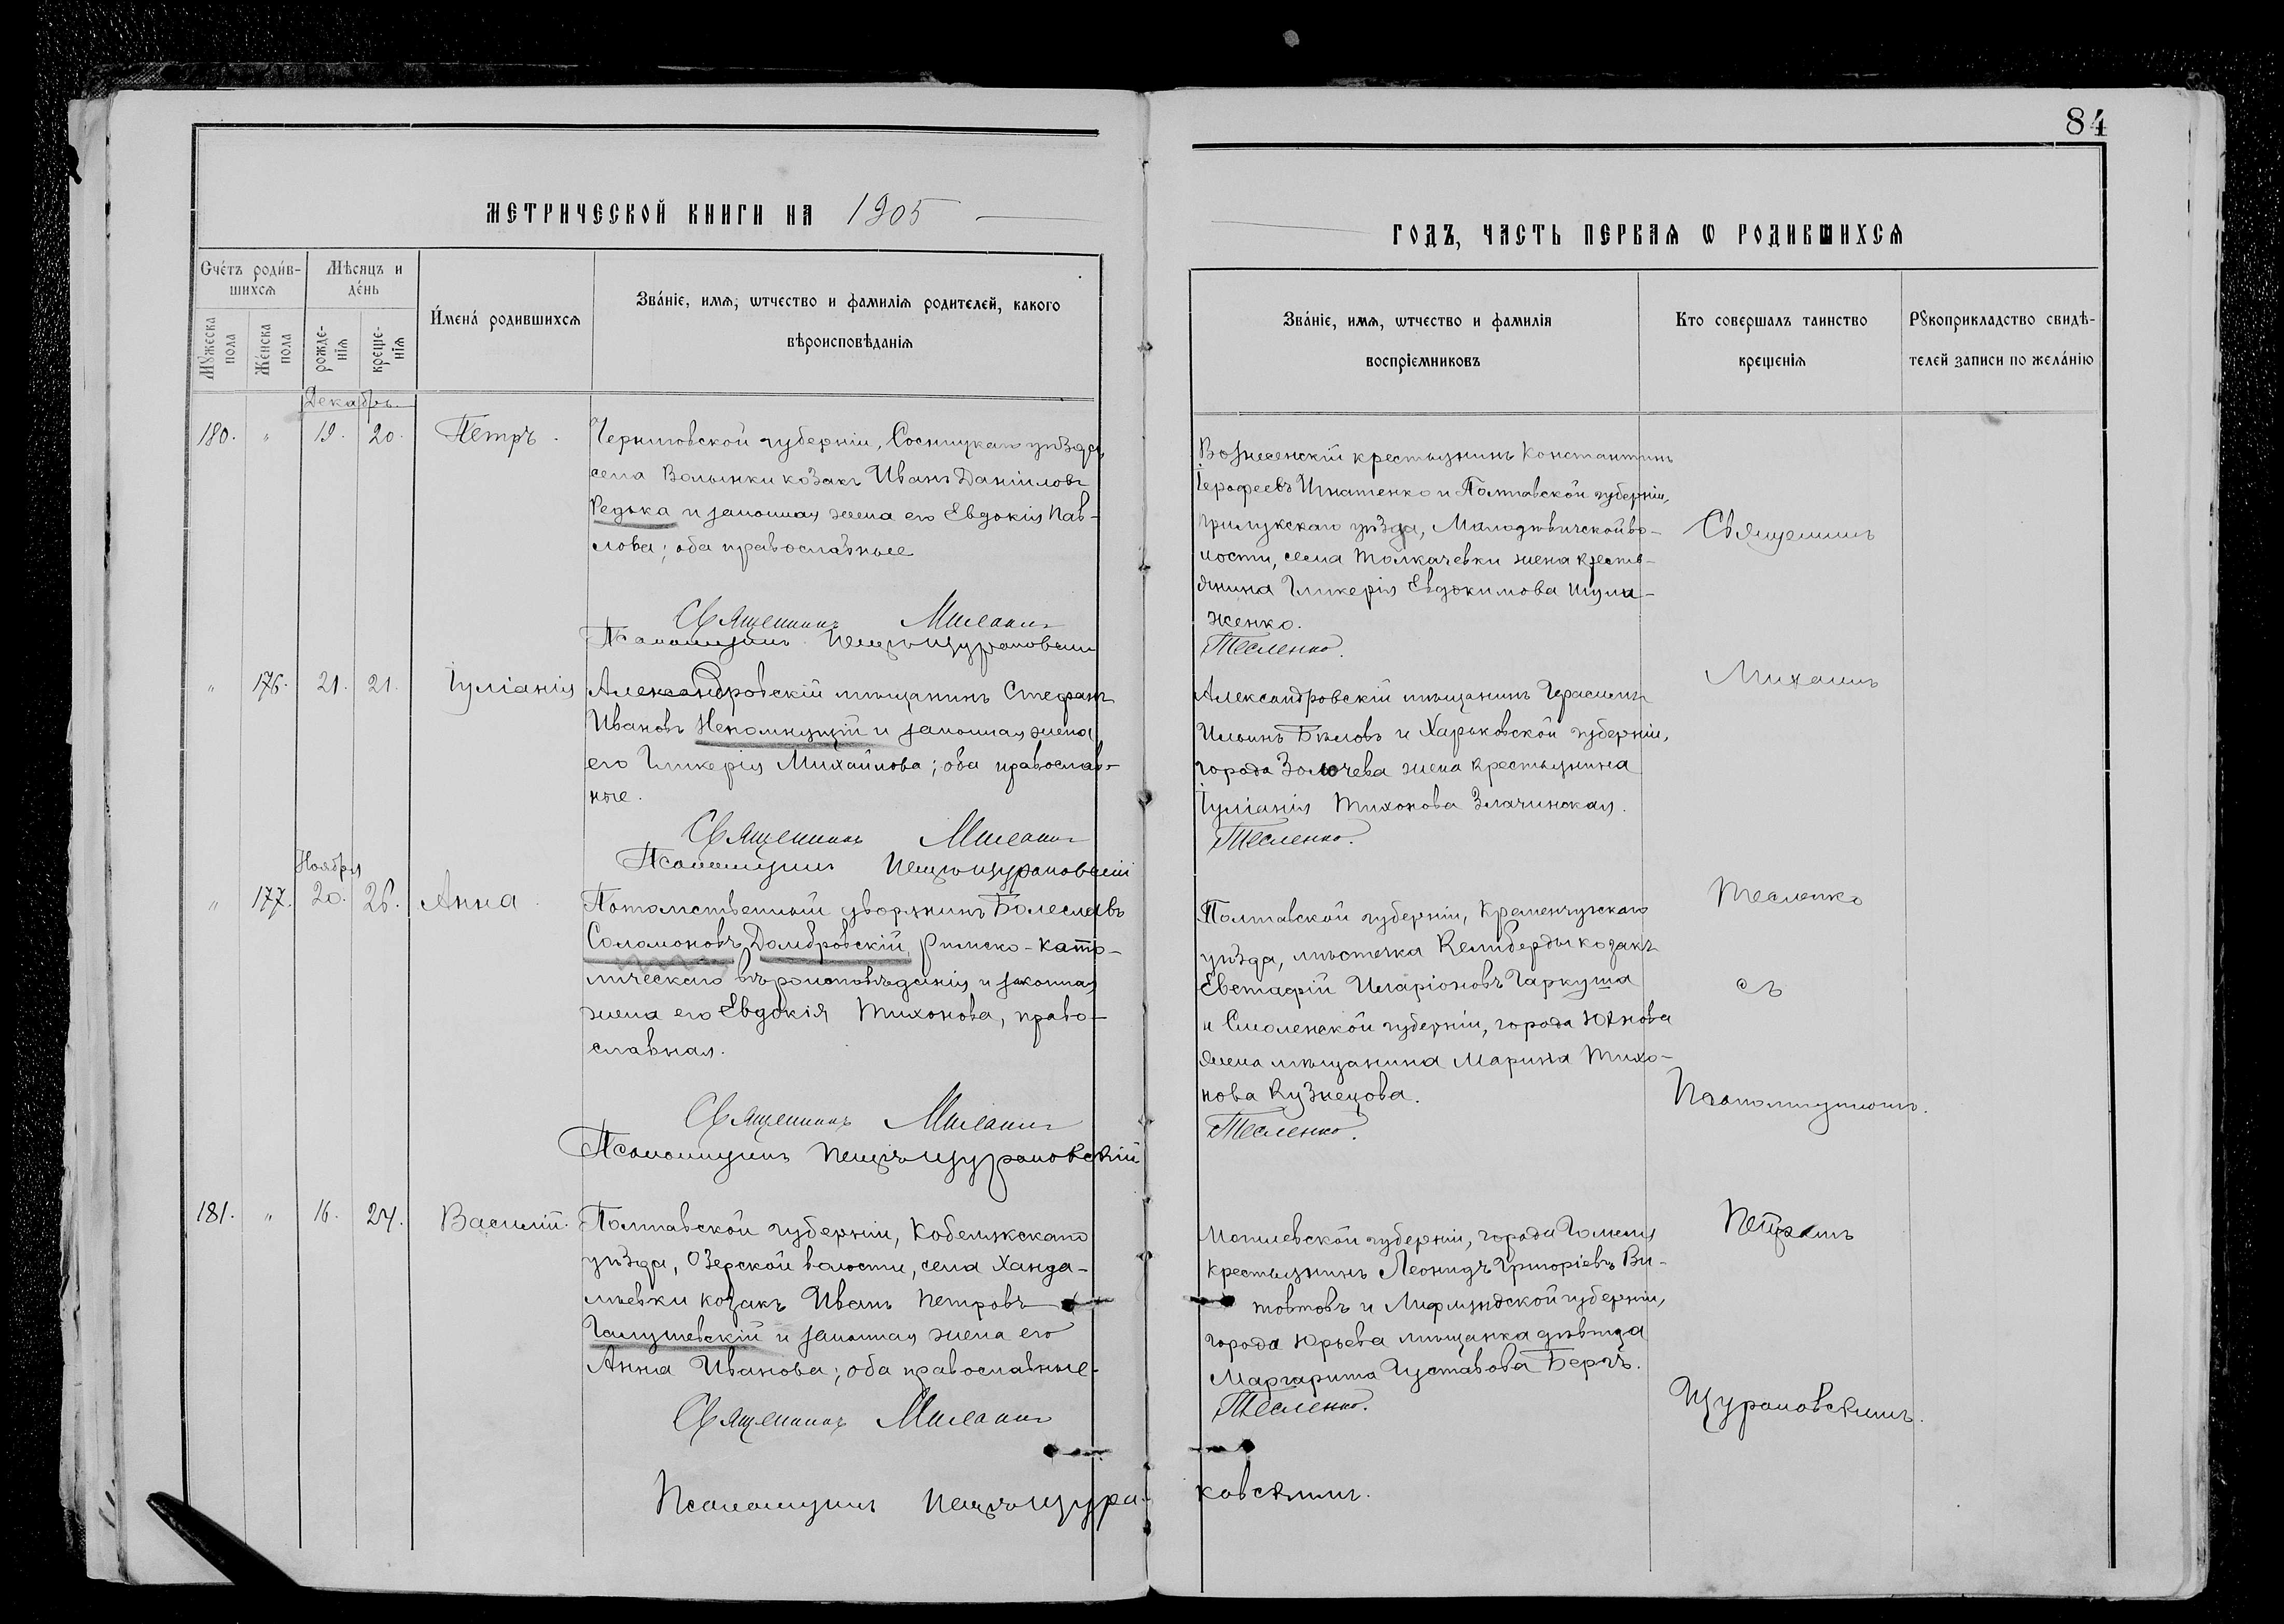 84
МЕТРИЧЕСКОЙ КНИГИ НА 1905
ГОДЪ, ЧАСТЬ ПЕРВАѦ Ѡ РОДИВШИХСѦ
Счéтъ родѝв-
шихсѧ
Мѣсяцъ и
дéнь
Мꙋжеска
пола
Жéнска
пола
рожде-
нїѧ
креще-
нїѧ
И́менá родившихсѧ
Звáнїе, имѧ, ѡтчество и фамилїѧ родителей, какого
вѣроисповѣданїѧ
Звáнїе, имѧ, ѡтчество и фамилїѧ
воспрїемниковъ
Кто совершалъ таинство
крещенїѧ
Рꙋкоприкладство свидѣ-
телей записи по желáнїю
Декабрь
180. " 19. 20. Петръ.
Черниговской губерніи, Сосницкаго уѣзда,
села Волынки козакъ Иванъ Даніиловъ
Редька и законная жена его Евдокія Пав-
лова; оба православные
Священникъ
Псаломщикъ Петръ Цураковскій
Вознесенскій крестьянинъ Константинъ
Іерофеевъ Игнатенко и Полтавской губерніи,
Прилукскаго уѣзда, во-
лости, села Толкачевки жена кресть-
янина Гликерія Евдокимова Шула-
женко.
Тесленко.
" 176. 21. 21. Іуліанія
Александровскій мѣщанинъ Стефанъ
Ивановъ Непомнущій и законная жена
его Гликерія Михайлова; оба православ-
ные.
Священникъ
Псаломщикъ Петръ Цураковскій
Александровскій мѣщанинъ Герасимъ
Ильинъ Бѣловъ и Харьковской губерніи,
города Золочева жена крестьянина
Іуліанія Тихонова Злачинская.
Тесленко.
Ноября
" 177. 20. 26. Анна.
Потомственный дворянинъ Болеславъ
Соломоновъ Домбровскій, римско-като-
лическаго вѣроисповѣданія и законная
жена его Евдокія Тихонова, право-
славная.
Священникъ
Псаломщикъ Петръ Цураковскій
Полтавской губерніи, Кременчугскаго
уѣзда, мѣстечка Келиберды козакъ
Евстафій Иларіоновъ Гаркуша
и Смоленской губерніи, города Юхнова
жена мѣщанина Марина Тихо-
нова Кузнецова.
Тесленко.
181. " 16. 24. Василій.
Полтавской губерніи, Кобелякскаго
уѣзда, Озерской волости, села Ханда-
лѣевки козакъ Иванъ Петровъ
Галушевскій и законная жена его
Анна Иванова; оба православные.
Священникъ
Псаломщикъ Петръ Цура-
ковскимъ.
Могилевской губерніи, города Гомеля
крестьянинъ Леонидъ Григоріевъ Ви-
товтовъ и Лифляндской губерніи,
города Юрьева мѣщанка дѣвица
Маргарита Густавова Бергъ.
Тесленко.
Священникъ
Михаилъ
Тесленко
съ
Псаломщикомъ.
Петромъ
Цураковскимъ.